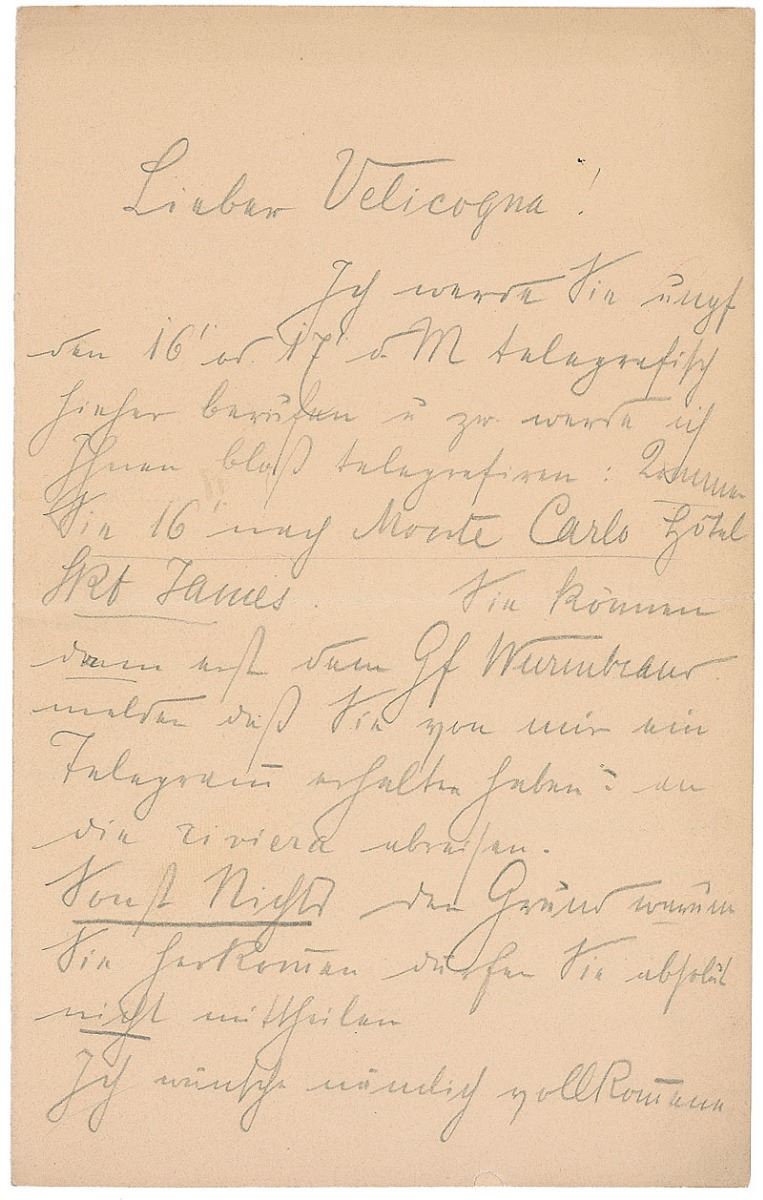 Lieber Velicogna!
Ich werde Sie ungf
den 16' od. 17' d. M telegrafisch
hieher berufen u zw. werde ich
Ihnen bloß telegrafiren: Kommen
Sie 16' nach Monte Carlo Hôtel
Skt James. Sie können
dann erst dem Gf Wurmbrand
melden daß Sie von mir ein
Telegram̅ erhalten haben u. an
die Riviera abreisen.
Sonst Nichts den Grund warum
Sie herkom̅en dürfen Sie absolut
nicht mittheilen
Ich wünsche nämlich vollkom̅ene